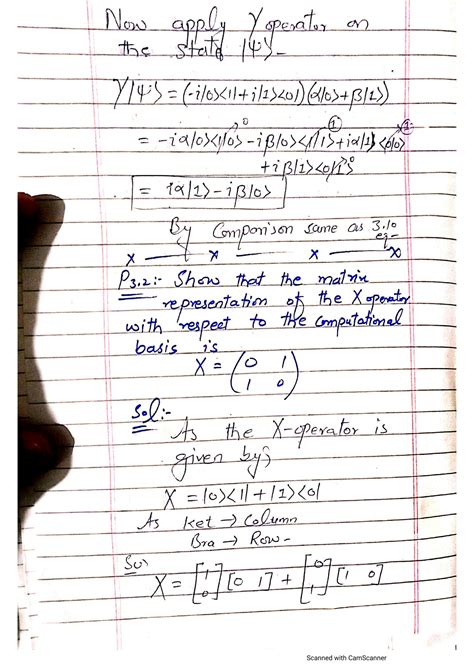 Now apply Y operator on
the state |ψ⟩-
Y|ψ⟩ = (-i|0⟩⟨1| + i|1⟩⟨0|)(α|0⟩+β|1⟩)
= -iα|0⟩⟨1|0⟩ - iβ|0⟩⟨1|1⟩ + iα|1⟩⟨0|0⟩
+ iβ|1⟩⟨0|1⟩
= iα|1⟩ - iβ|0⟩
By Comparison same as 3.10
eq-
x — x — x — x
P3.2:- Show that the matrix
representation of the X operator
with respect to the computational
basis is
X = (0 1
1 0)
Sol:-
As the X-operator is
given by;
X = |0⟩⟨1| + |1⟩⟨0|
As ket → Column
Bra → Row-
So,
X = [1 0] [0 1] + [0 1] [1 0]
Scanned with CamScanner